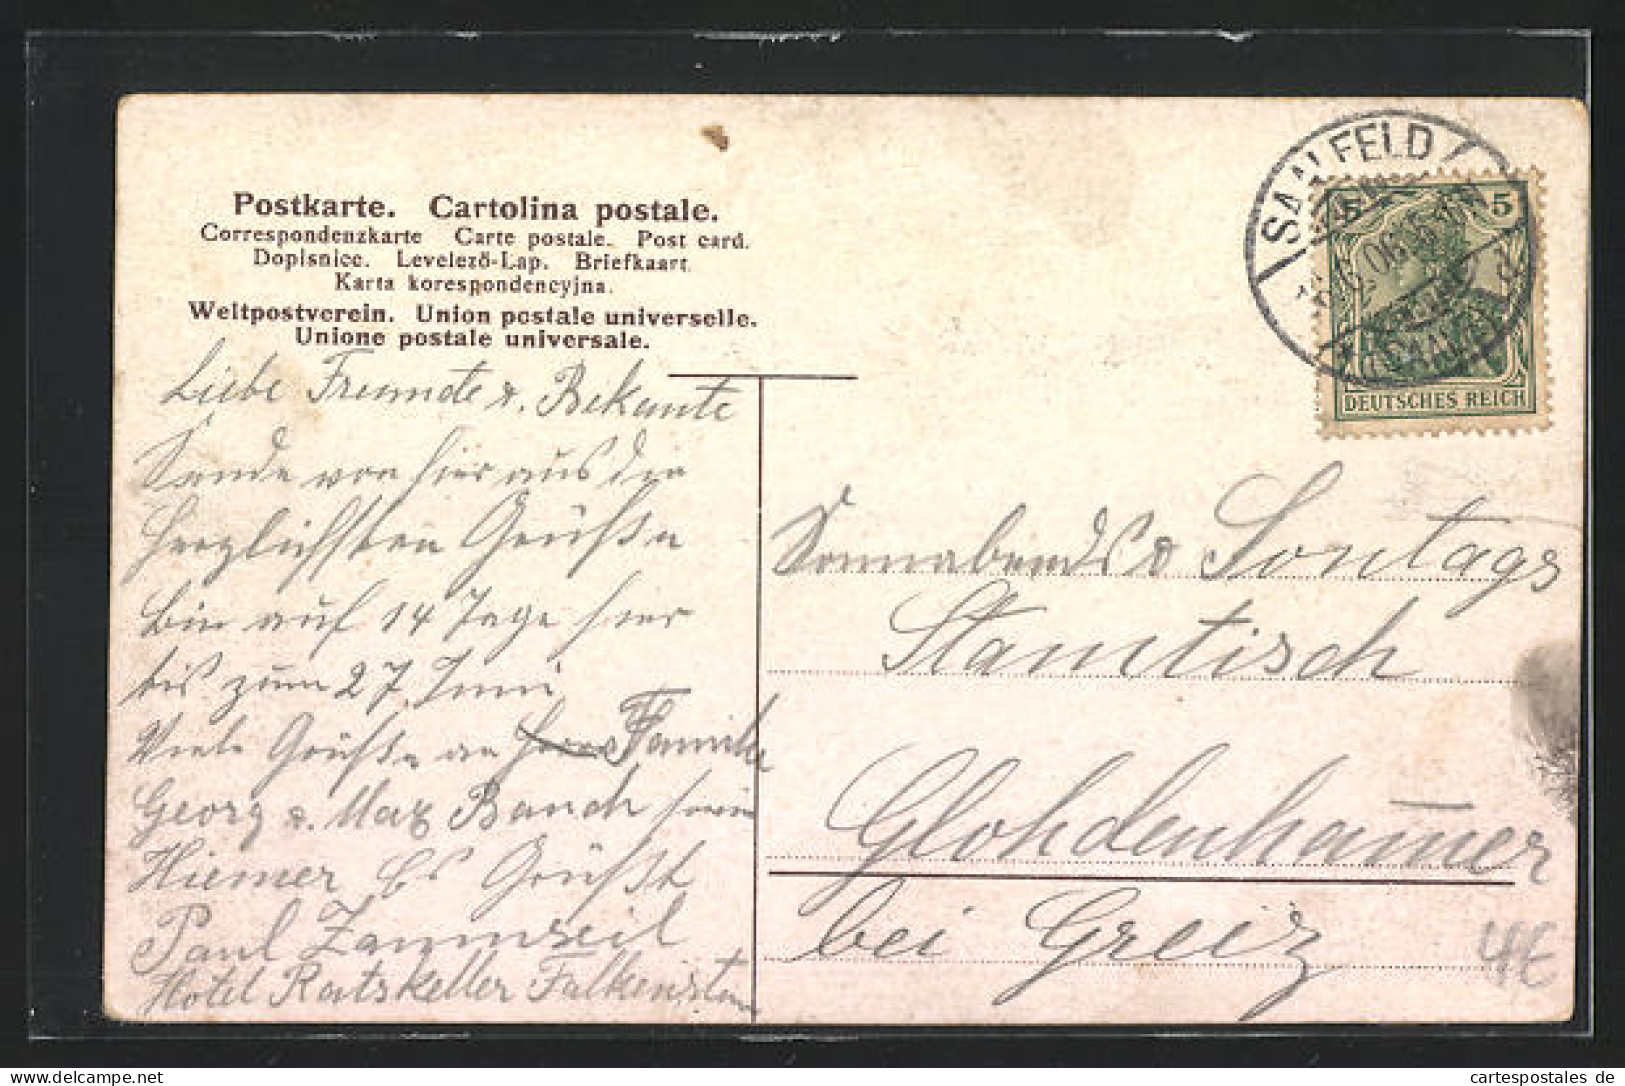 Postkarte. Cartolina postale.
Correspondenzkarte Carte postale. Post card.
Dopisnice. Levelező-Lap. Briefkaart.
Karta korespondencyjna.
Weltpostverein. Union postale universelle.
Unione postale universale.
SAALFELD
06
5 5
DEUTSCHES REICH
Liebe Freunde u. Bekante
Sende von hier aus die
herzlichsten Grüße
bin auf 14 Tage hier
bis zum 27. Juni
Viele Grüße an Familie
Georg u. Max Bauch sowie
Hiemer Es Grüßt
Paul
Hotel Ratskeller Falkenstein
Sonnabends & Sontags
Stamtisch
Glohdenham̄er
bei Greiz
4€
cartespostales de